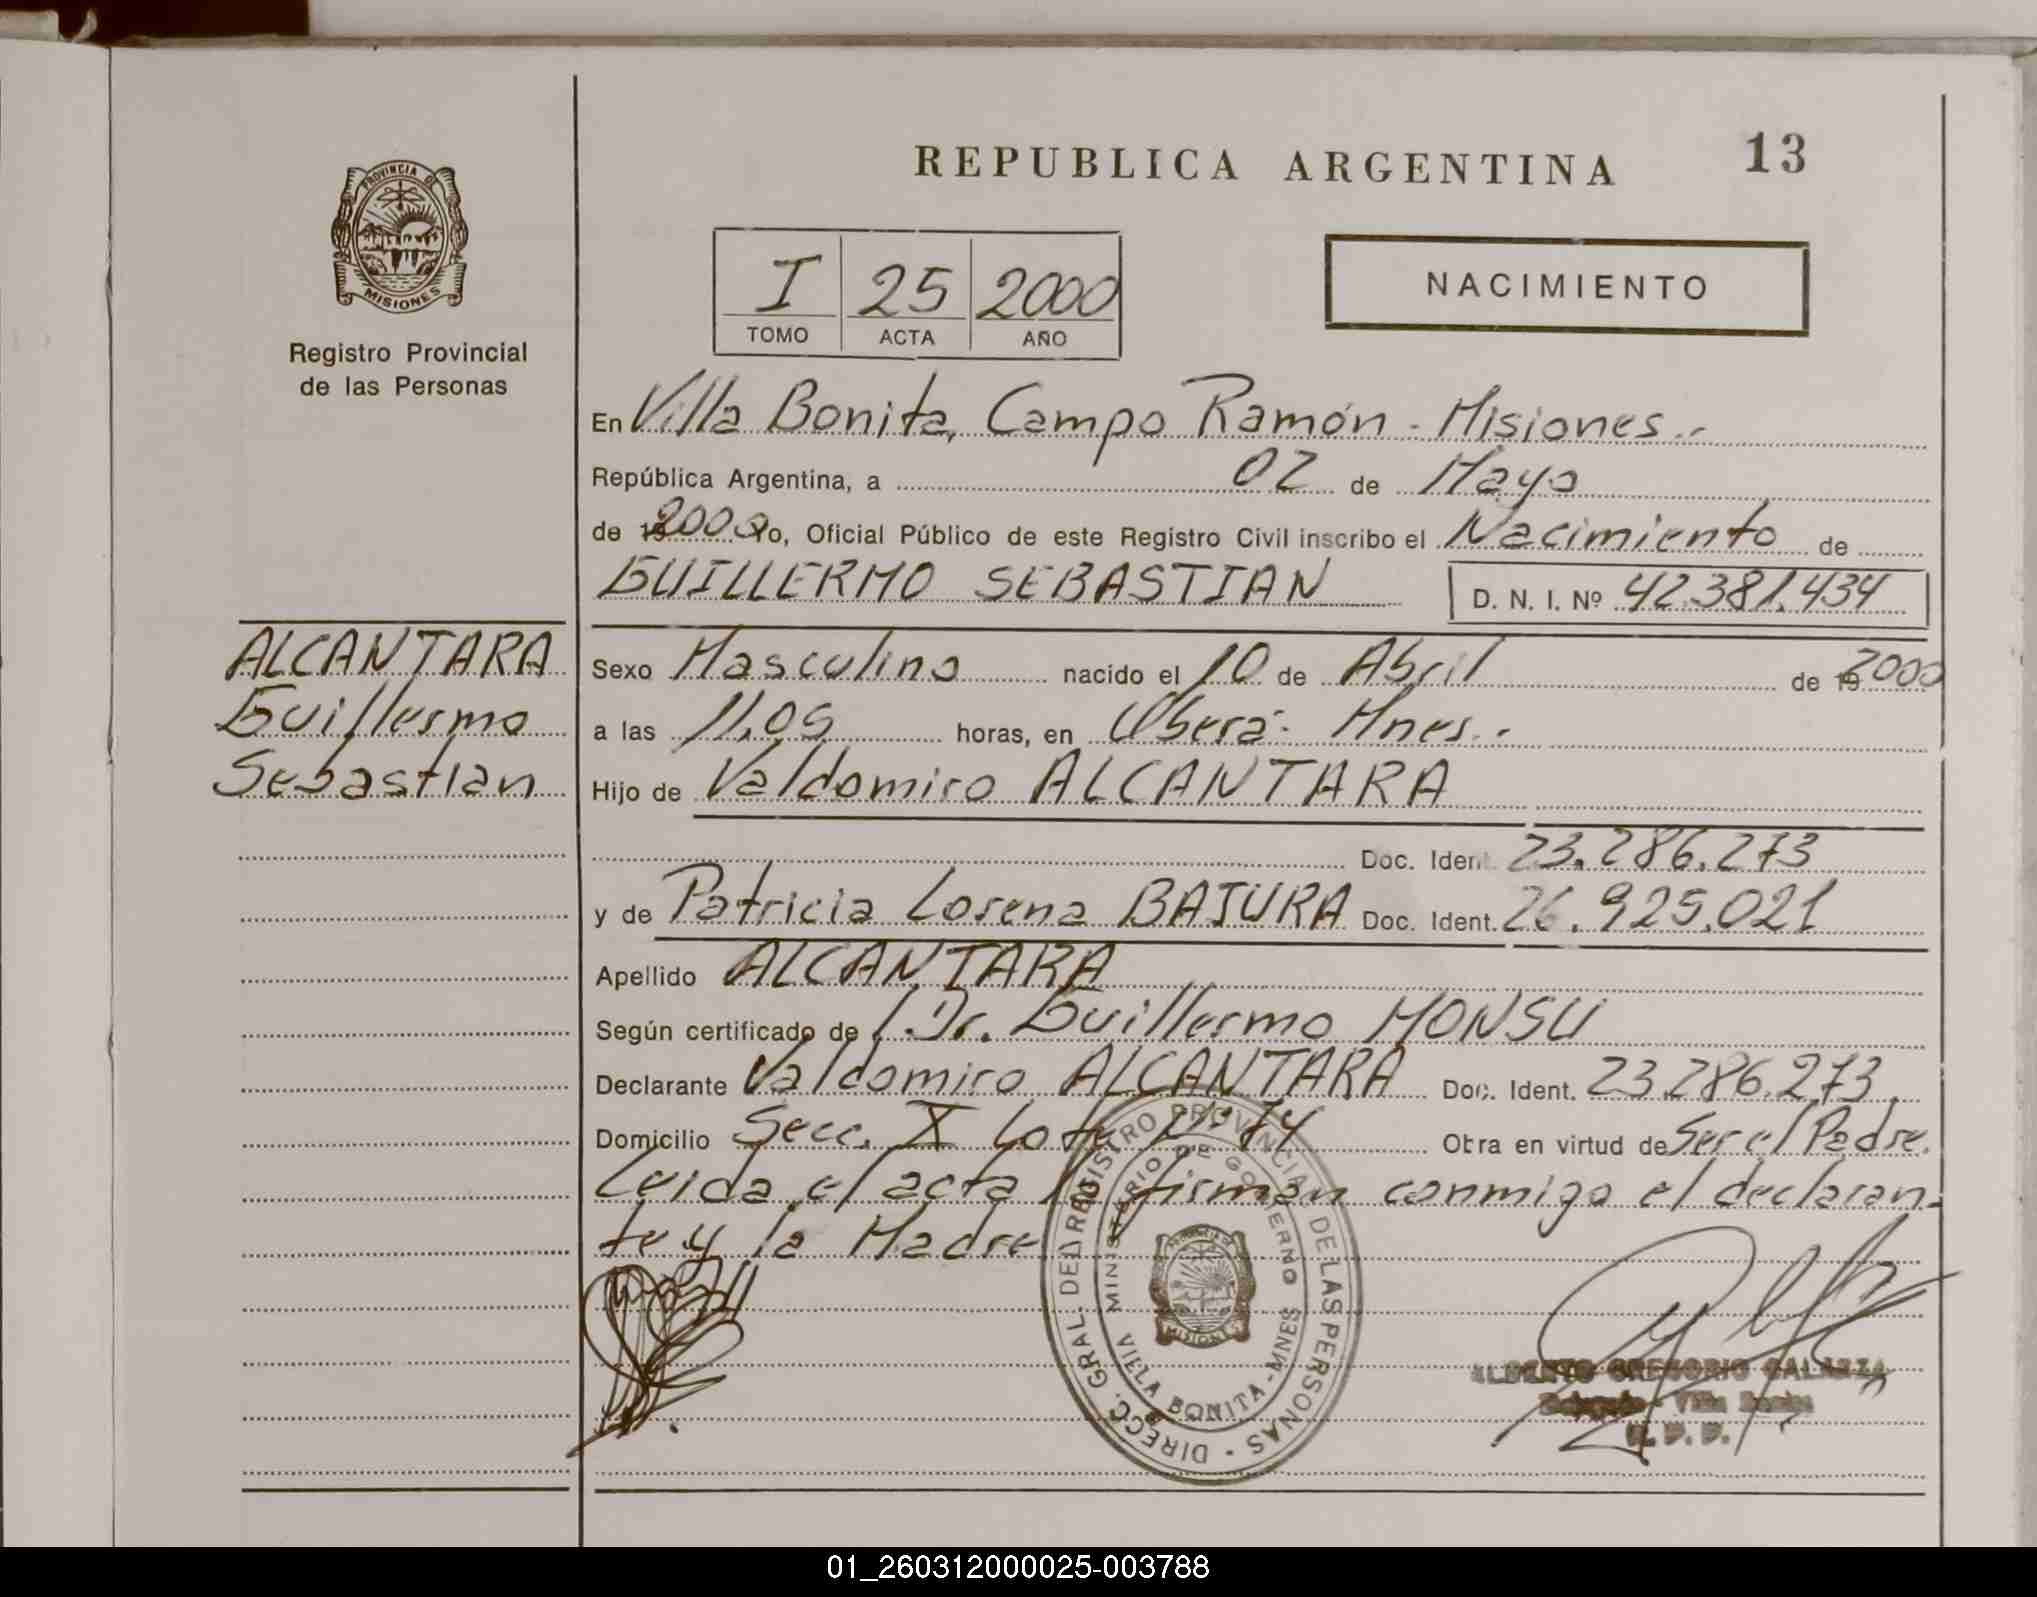 PROVINCIA DE
MISIONES
Registro Provincial
de las Personas
REPUBLICA ARGENTINA 13
I 25 2000
TOMO ACTA AÑO
NACIMIENTO
En Villa Bonita, Campo Ramón - Misiones.-
República Argentina, a 02 de Mayo
de 192000 Yo, Oficial Público de este Registro Civil inscribo el Nacimiento de
GUILLERMO SEBASTIAN D. N. I. Nº 42.381.434
ALCANTARA
Guillermo
Sebastian
Sexo Masculino nacido el 10 de Abril de 192000
a las 11,05 horas, en Oberá- Mnes.-
Hijo de Valdomiro ALCANTARA
Doc. Ident. 23.286.273
y de Patricia Lorena BAJURA Doc. Ident. 26.925.021
Apellido ALCANTARA
Según certificado de / Dr. Guillermo MONSU
Declarante Valdomiro ALCANTARA Doc. Ident. 23.286.273
Domicilio Secc. X Lote Nº 74 Obra en virtud de Ser el Padre.
Leida el acta la firman conmigo el declaran-
te y la Madre
DIRECC. GRAL. DEL REGISTRO PROVINCIAL DE LAS PERSONAS -
MINISTERIO DE GOBIERNO
VILLA BONITA - MNES
MISIONES
ALBERTO GREGORIO GALARZA
Delegado - Villa Bonita
R. P. P.
01_260312000025-003788